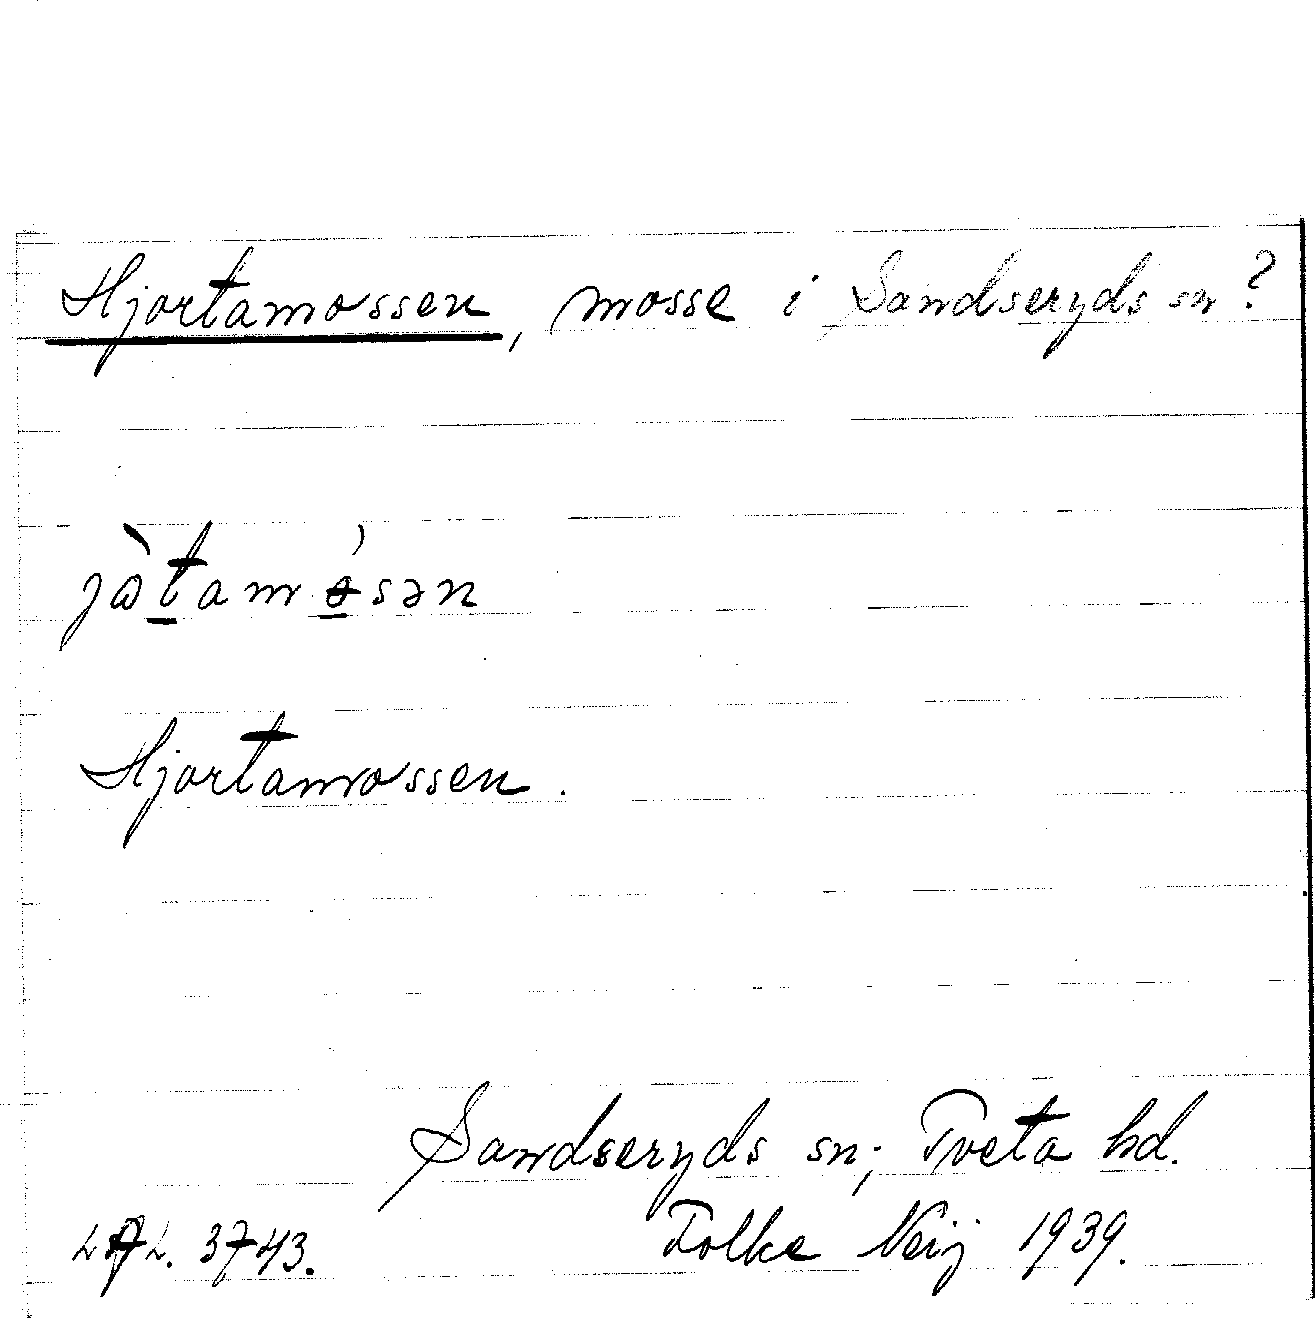 Hjortamossen, mosse i Sandseryds sn?
jɷ̀t̲amө̲́sən
Hjortamossen.
Sandseryds sn; Tveta hd.
3743. Folke Neij 1939.